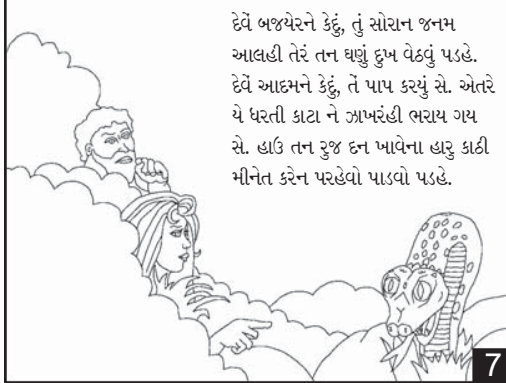 દેવેં બજયેરને કેદું, તું સોરાન જનમ
આલહી તેરં તન ઘણું દુખ વેઠવું પડહે.
દેવેં આદમને કેદું, તેં પાપ કરયું સે. એતરે
યે ધરતી કાટા ને ઝાખરંહી ભરાય ગય
સે. હાઉ તન રુજ દન ખાવેના હારુ કાઠી
મીનેત કરેન પરહેવો પાડવો પડહે.
7